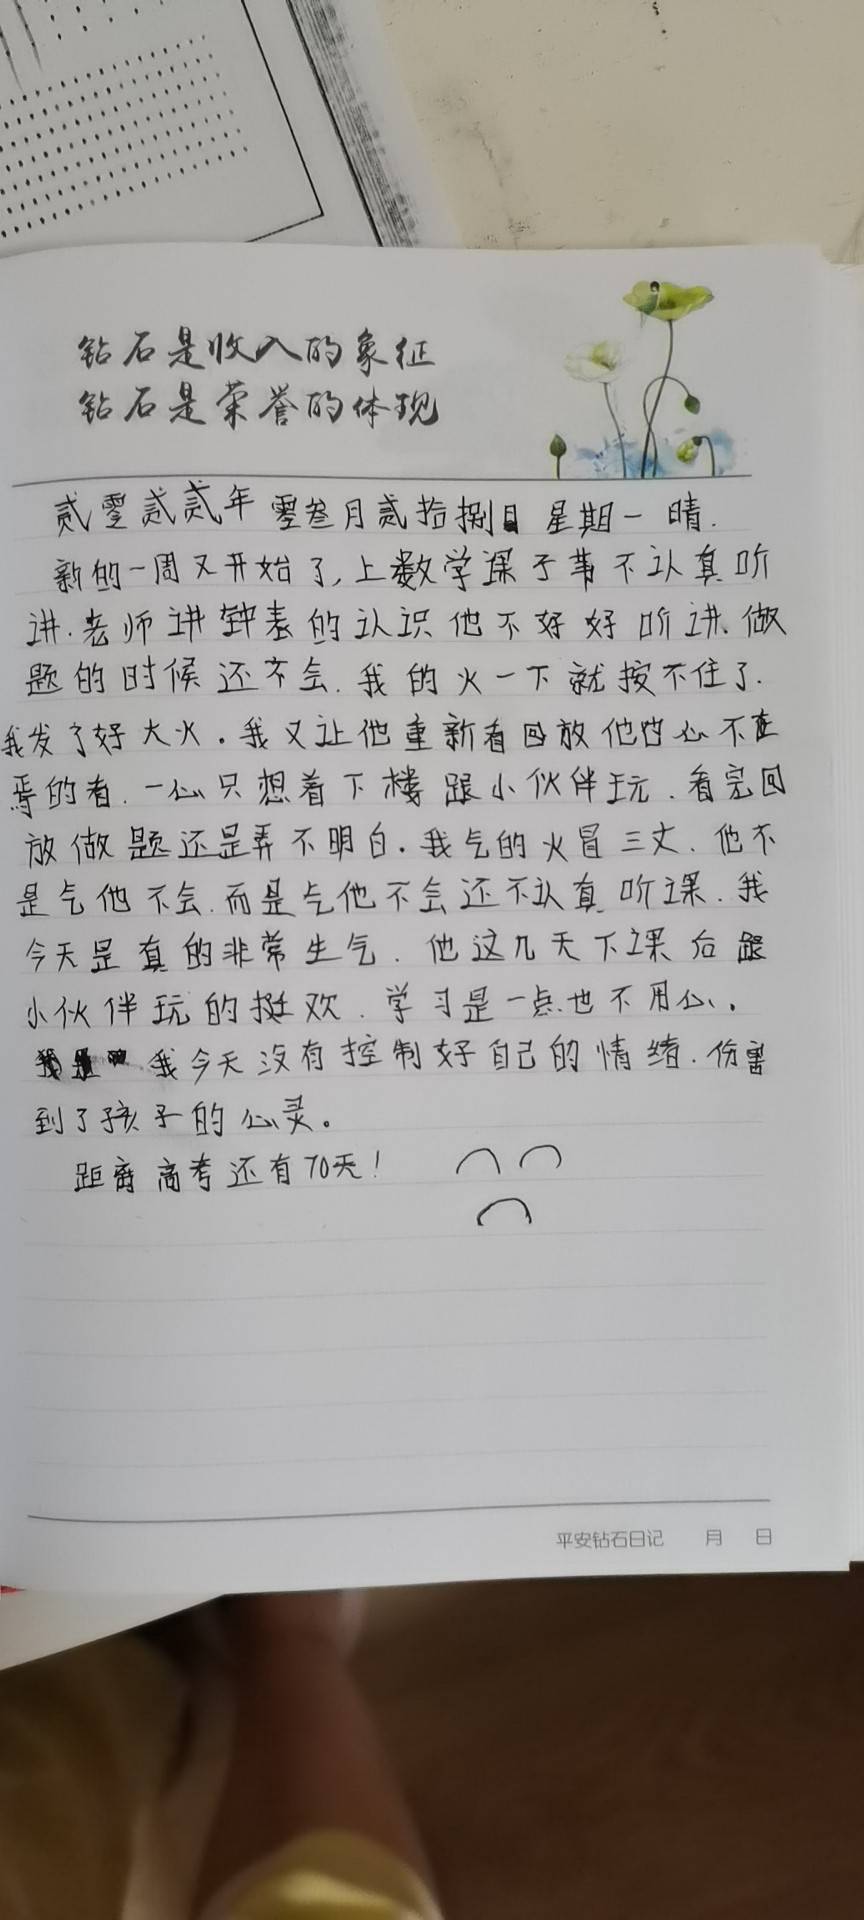 钻石是收入的象征
钻石是荣誉的体现
贰零贰贰年 零叁月贰拾捌日 星期一 晴.
新的一周又开始了,上数学课子苇不认真听
讲.老师讲钟表的认识他不好好听讲.做
题的时候还不会.我的火一下就按不住了.
我发了好大火.我又让他重新看回放他心不在
焉的看.一心只想着下楼跟小伙伴玩.看完回
放做题还是弄不明白.我气的火冒三丈.他不
是气他不会.而是气他不会还不认真听课.我
今天是真的非常生气.他这几天下课后跟
小伙伴玩的挺欢.学习是一点也不用心.
我今天没有控制好自己的情绪.伤害
到了孩子的心灵。
距离高考还有70天!
平安钻石日记 月 日